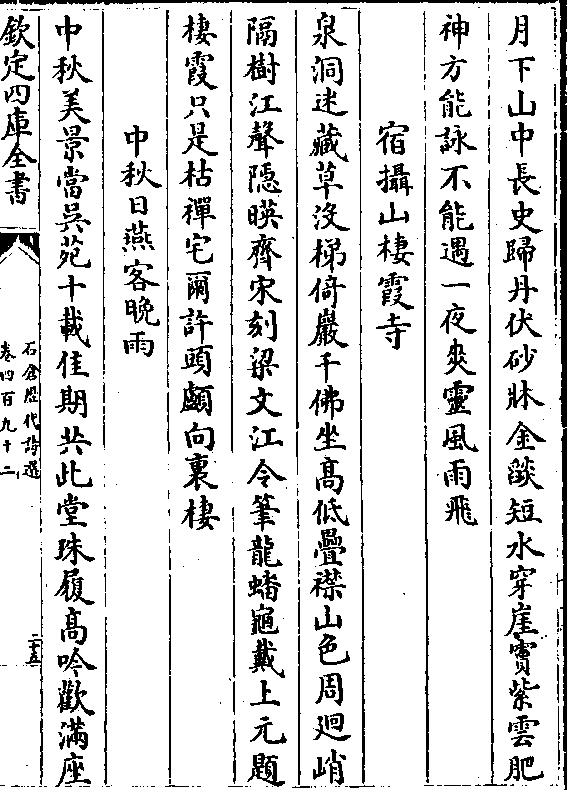 月下山中長史歸丹伏砂牀金燄短水穿崖竇紫雲肥
神方能詠不能遇一夜奭靈風雨飛
宿攝山棲霞寺
泉洞迷藏草沒梯倚巖千佛坐髙低疊襟山色周迴峭
隔樹江聲隠暎齊宋刻梁文江令筆龍蟠龜戴上元題
棲霞只是枯禪宅爾許頭顱向裏棲
中秋日燕客晚雨
中秋美景當吳苑十載佳期共此堂珠履髙吟歡滿座
欽定四庫全書
石倉歷代詩選
卷四百九十二
二十五